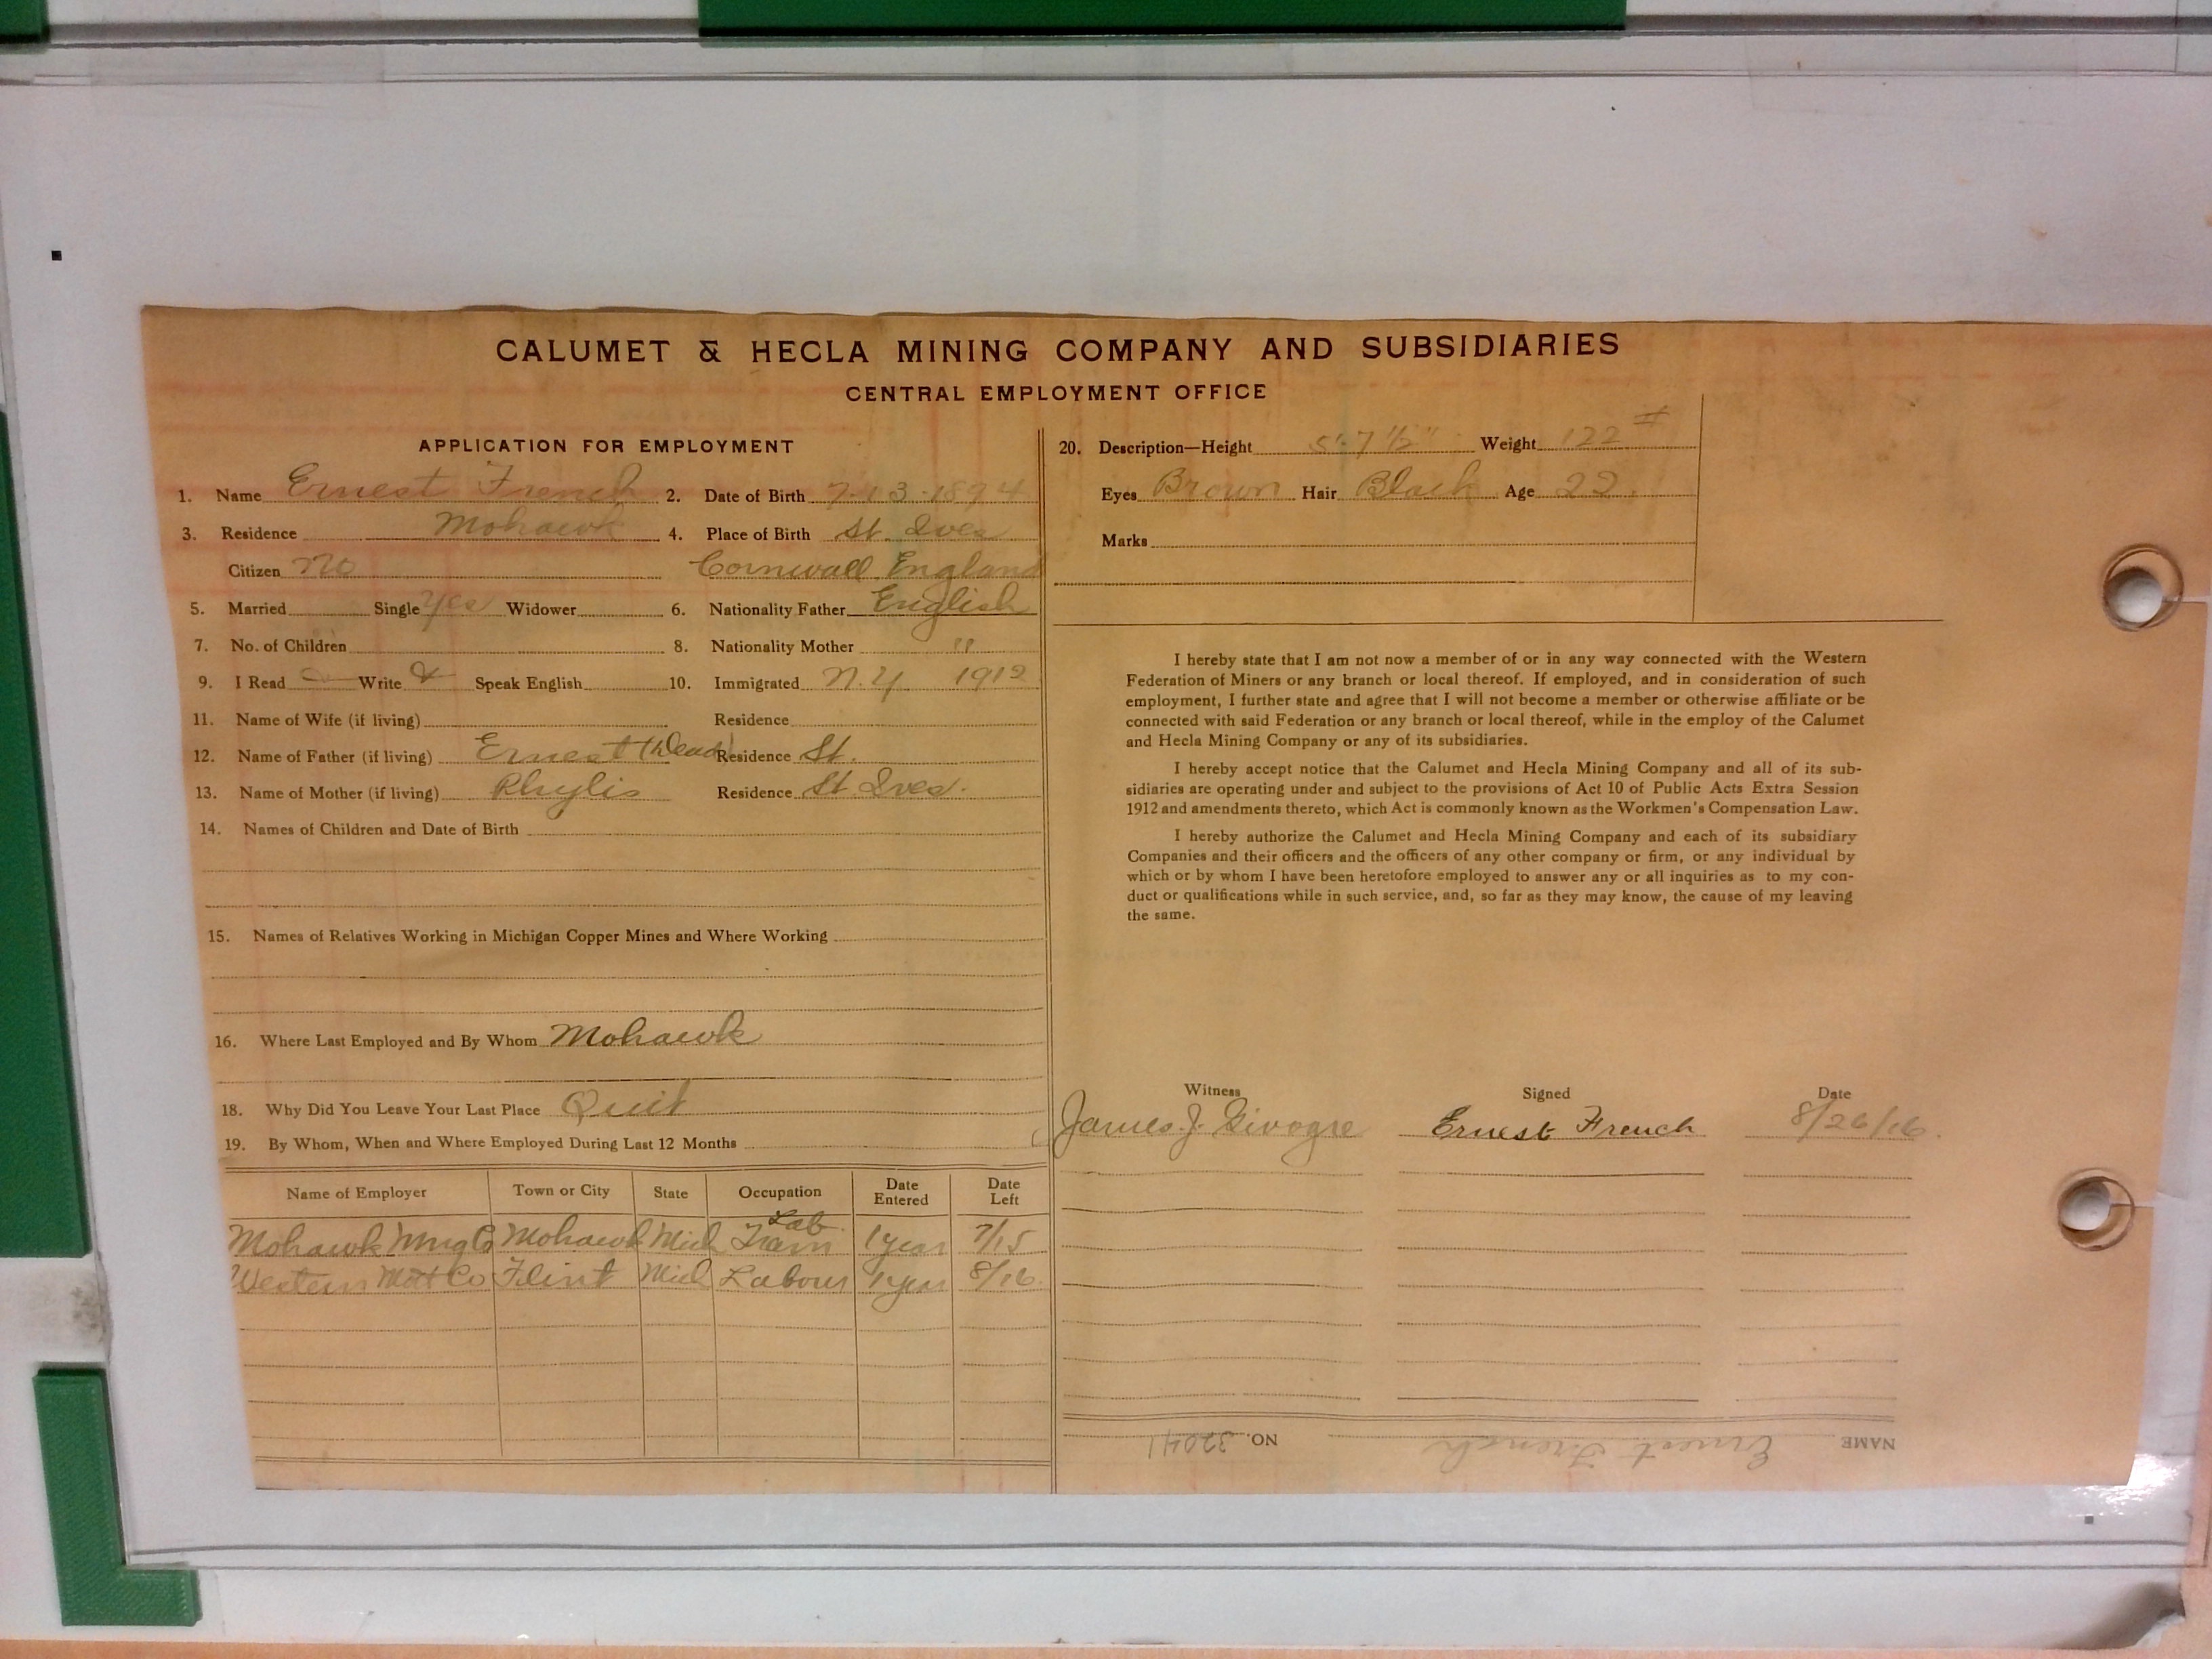 CALUMET & HECLA MINING COMPANY AND SUBSIDIARIES
CENTRAL EMPLOYMENT OFFICE
APPLICATION FOR EMPLOYMENT
1. Name Ernest French 2. Date of Birth 7-13-1894
3. Residence Mohawk 4. Place of Birth St. Ives
Citizen No Cornwall England
5. Married Single Yes Widower 6. Nationality Father English
7. No. of Children 8. Nationality Mother "
9. I Read Write Speak English 10. Immigrated N.Y 1912
11. Name of Wife (if living) Residence
12. Name of Father (if living) Ernest (Dead) Residence St.
13. Name of Mother (if living) Phylis Residence St. Ives.
14. Names of Children and Date of Birth
15. Names of Relatives Working in Michigan Copper Mines and Where Working
16. Where Last Employed and By Whom Mohawk
18. Why Did You Leave Your Last Place Quit
19. By Whom, When and Where Employed During Last 12 Months
Name of Employer Town or City State Occupation Date Entered Date Left
Mohawk Mng Co Mohawk Mich Tram Lab. 1 year 7/15
Western Mott Co Flint Mich Labour 1 year 8/16.
20. Description—Height 5'-7 1/2" Weight 122 #
Eyes Brown Hair Black Age 22.
Marks
I hereby state that I am not now a member of or in any way connected with the Western
Federation of Miners or any branch or local thereof. If employed, and in consideration of such
employment, I further state and agree that I will not become a member or otherwise affiliate or be
connected with said Federation or any branch or local thereof, while in the employ of the Calumet
and Hecla Mining Company or any of its subsidiaries.
I hereby accept notice that the Calumet and Hecla Mining Company and all of its sub-
sidiaries are operating under and subject to the provisions of Act 10 of Public Acts Extra Session
1912 and amendments thereto, which Act is commonly known as the Workmen's Compensation Law.
I hereby authorize the Calumet and Hecla Mining Company and each of its subsidiary
Companies and their officers and the officers of any other company or firm, or any individual by
which or by whom I have been heretofore employed to answer any or all inquiries as to my con-
duct or qualifications while in such service, and, so far as they may know, the cause of my leaving
the same.
Witness Signed Date
James J. Givogre Ernest French 8/26/16.
NAME Ernest French NO. 32041